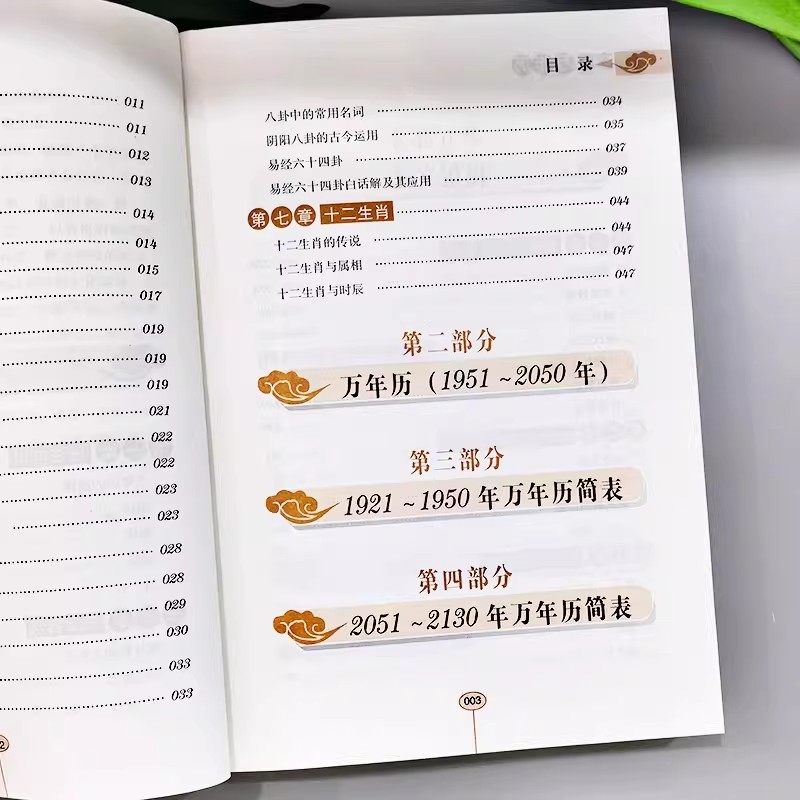 011
011
012
013
014
014
015
017
019
019
019
021
022
022
023
023
028
028
029
030
033
033
2
目 录
八卦中的常用名词 034
阴阳八卦的古今运用 035
易经六十四卦 037
易经六十四卦白话解及其应用 039
第七章 十二生肖 044
十二生肖的传说 044
十二生肖与属相 047
十二生肖与时辰 047
第二部分
万年历（1951 ~2050 年）
第三部分
1921 ~1950 年万年历简表
第四部分
2051 ~2130 年万年历简表
003